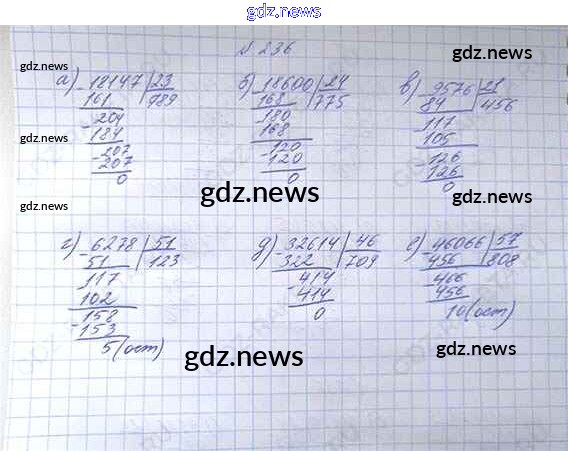 gdz.news
№ 236
gdz.news
gdz.news
а) 18147 | 23
- 161 | 989
204
- 184
207
- 207
0
б) 18600 | 24
- 168 | 775
180
- 168
120
- 120
0
в) 9576 | 21
- 84 | 456
117
- 105
126
- 126
0
gdz.news
gdz.news
gdz.news
gdz.news
г) 6278 | 51
- 51 | 123
117
- 102
158
- 153
5 (ост)
д) 32614 | 46
- 322 | 709
414
- 414
0
е) 46066 | 57
- 456 | 808
466
- 456
10 (ост)
gdz.news
gdz.news